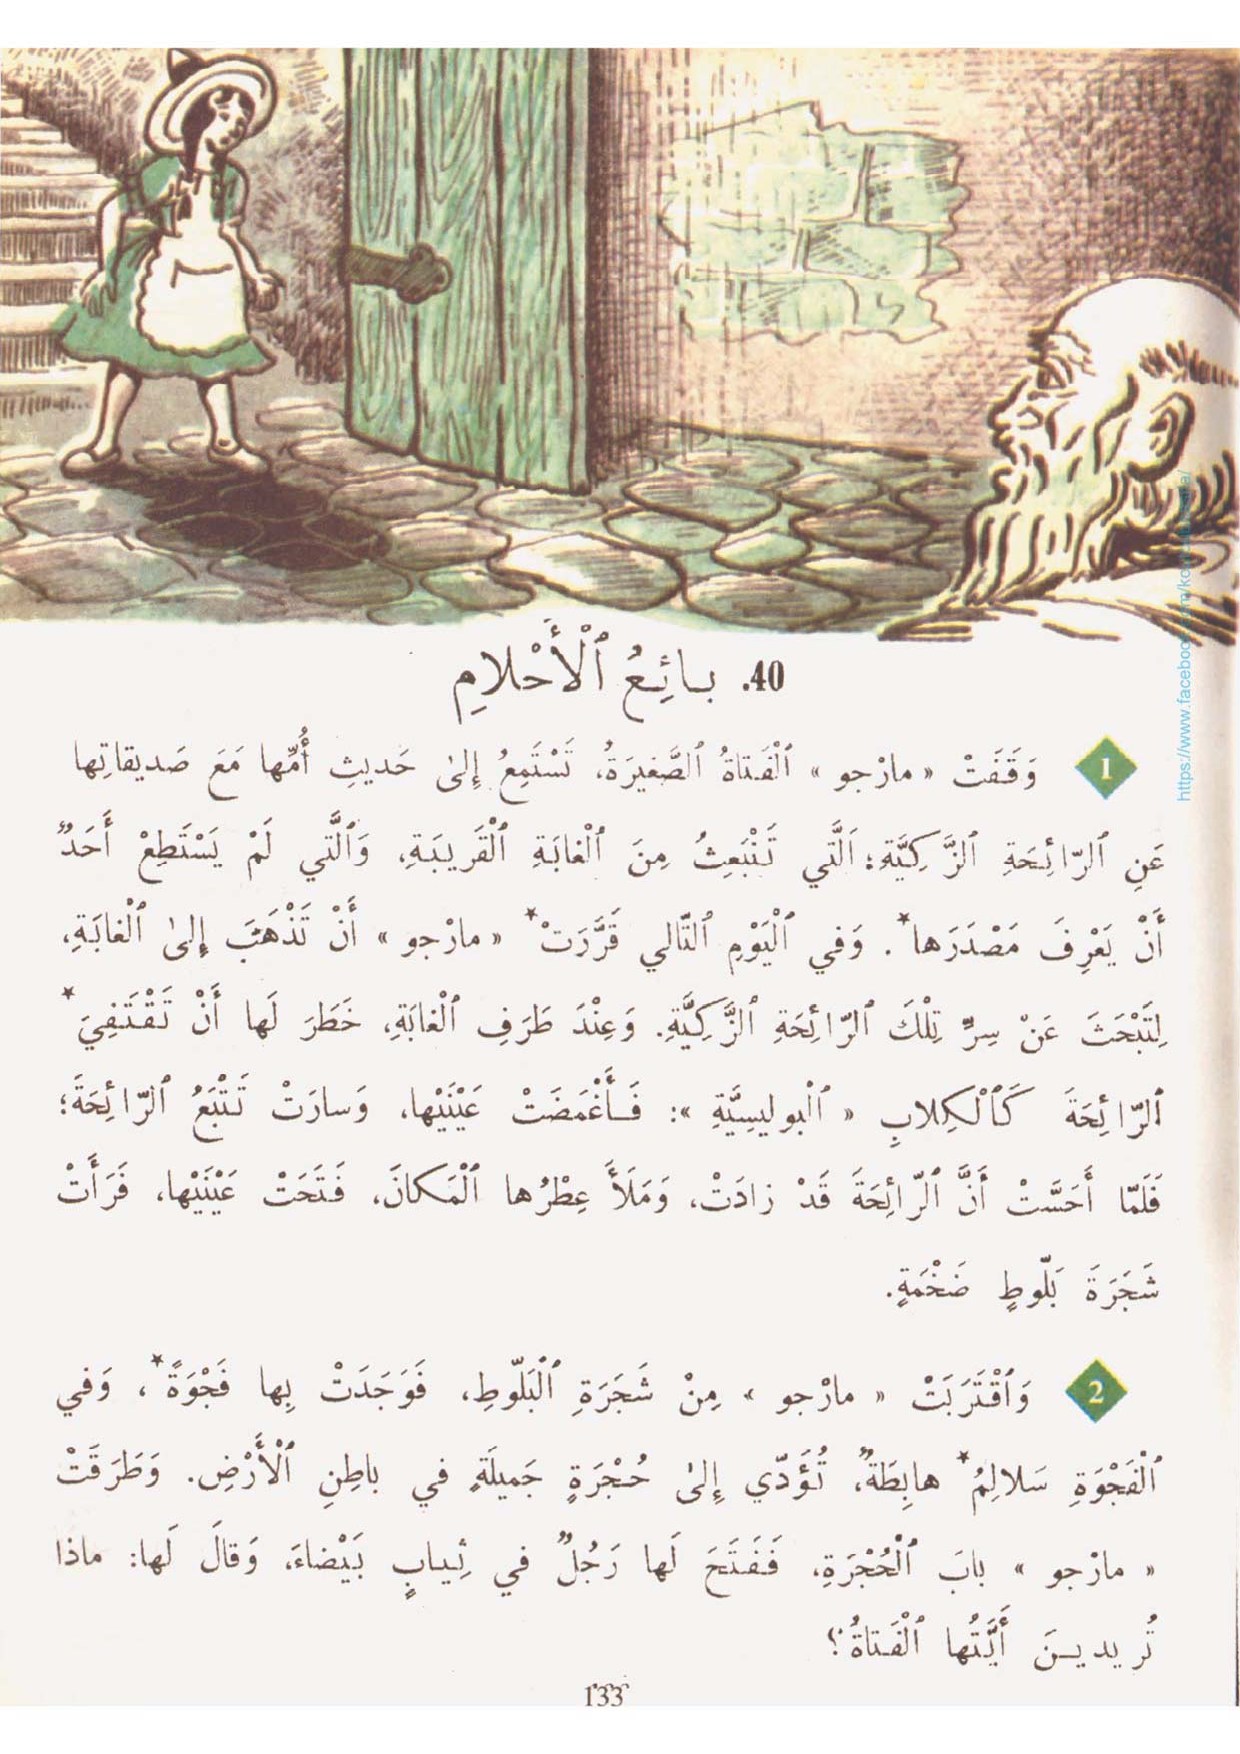 40. بائِعُ ٱلْأَحْلامِ
1 وَقَفَتْ « مارْجو » ٱلْفَتاةُ ٱلصَّغيرَةُ، تَسْتَمِعُ إِلىٰ حَديثِ أُمِّها مَعَ صَديقاتِها
عَنِ ٱلرّائِحَةِ ٱلزَّكِيَّةِ؛ اَلَّتي تَنْبَعِثُ مِنَ ٱلْغابَةِ ٱلْقَريبَةِ، وَٱلَّتي لَمْ يَسْتَطِعْ أَحَدٌ
أَنْ يَعْرِفَ مَصْدَرَها*. وَفي ٱلْيَوْمِ ٱلتّالي قَرَّرَتْ* « مارْجو » أَنْ تَذْهَبَ إِلىٰ ٱلْغابَةِ،
لِتَبْحَثَ عَنْ سِرِّ تِلْكَ ٱلرّائِحَةِ ٱلزَّكِيَّةِ. وَعِنْدَ طَرَفِ ٱلْغابَةِ، خَطَرَ لَها أَنْ تَقْتَفِيَ*
ٱلرّائِحَةَ كَٱلْكِلابِ « ٱلْبوليسِيَّةِ »: فَأَغْمَضَتْ عَيْنَيْها، وَسارَتْ تَتْبَعُ ٱلرّائِحَةَ؛
فَلَمّا أَحَسَّتْ أَنَّ ٱلرّائِحَةَ قَدْ زادَتْ، وَمَلَأَ عِطْرُها ٱلْمَكانَ، فَتَحَتْ عَيْنَيْها، فَرَأَتْ
شَجَرَةَ بَلّوطٍ ضَخْمَةٍ.
2 وَٱقْتَرَبَتْ « مارْجو » مِنْ شَجَرَةِ ٱلْبَلّوطِ، فَوَجَدَتْ بِها فَجْوَةً*، وَفي
ٱلْفَجْوَةِ سَلالِمُ* هابِطَةٌ، تُؤَدّي إِلىٰ حُجْرَةٍ جَميلَةٍ في باطِنِ ٱلْأَرْضِ. وَطَرَقَتْ
« مارْجو » بابَ ٱلْحُجْرَةِ، فَفَتَحَ لَها رَجُلٌ في ثِيابٍ بَيْضاءَ، وَقالَ لَها: ماذا
تُريدينَ أَيَّتُها ٱلْفَتاةُ؟
133